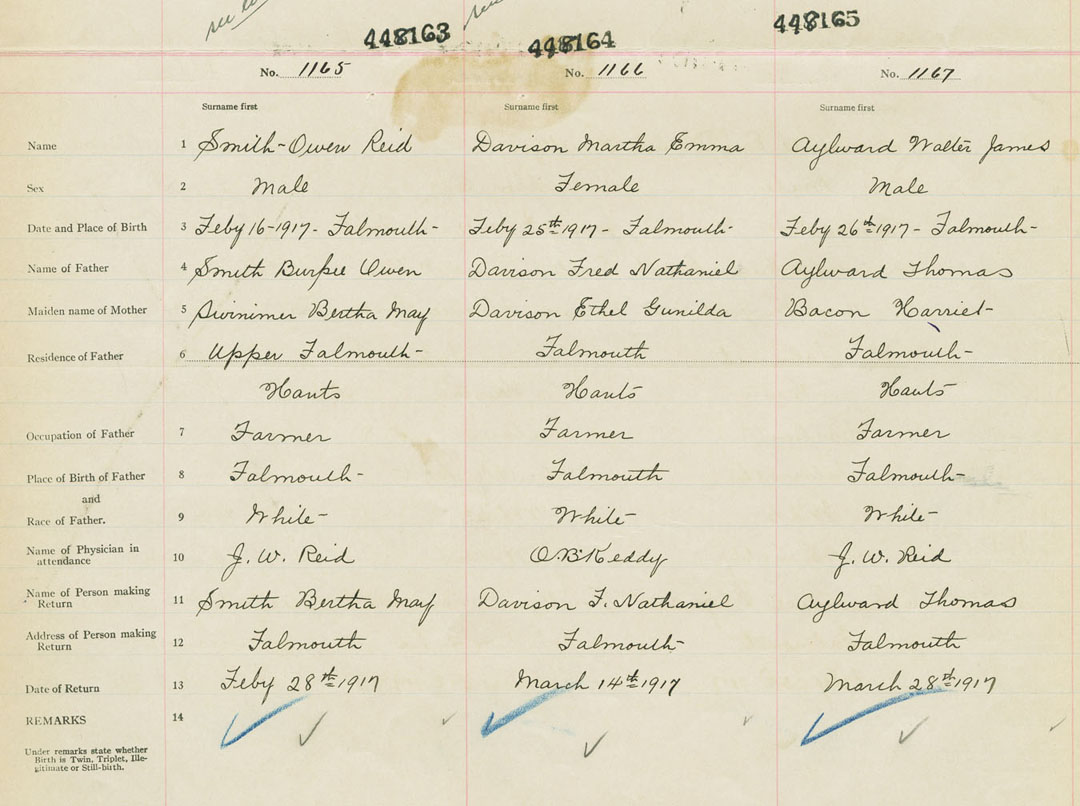 448163 448164 448165
No. 1165 No. 1166 No. 1167
Surname first Surname first Surname first
Name 1 Smith-Owen Reid Davison Martha Emma Aylward Walter James
Sex 2 Male Female Male
Date and Place of Birth 3 Feby 16-1917- Falmouth- Feby 25th 1917- Falmouth- Feby 26th 1917- Falmouth-
Name of Father 4 Smith Burpee Owen Davison Fred Nathaniel Aylward Thomas
Maiden name of Mother 5 Swinimer Bertha May Davison Ethel Gunilda Bacon Harriet-
Residence of Father 6 Upper Falmouth- Falmouth Falmouth-
Hants Hants Hants
Occupation of Father 7 Farmer Farmer Farmer
Place of Birth of Father 8 Falmouth- Falmouth Falmouth-
and
Race of Father. 9 White- White- White-
Name of Physician in
attendance 10 J. W. Reid O.B. Keddy J. W. Reid
Name of Person making
Return 11 Smith Bertha May Davison F. Nathaniel Aylward Thomas
Address of Person making
Return 12 Falmouth Falmouth- Falmouth
Date of Return 13 Feby 28th 1917 March 14th 1917 March 28th 1917
REMARKS 14
Under remarks state whether
Birth is Twin, Triplet, Ille-
gitimate or Still-birth.